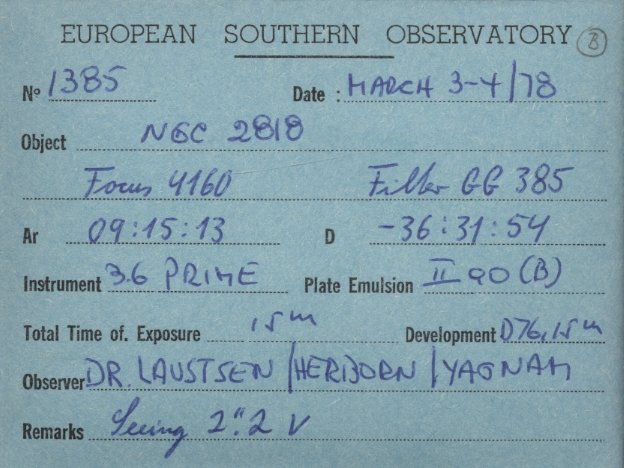 EUROPEAN SOUTHERN OBSERVATORY B
Nº 1385 Date : MARCH 3-4/78
Object NGC 2818
Focus 4160 Filter GG 385
Ar 09:15:13 D -36:31:54
Instrument 3.6 PRIME Plate Emulsion IIaO (B)
Total Time of. Exposure 15m Development D76, 15m
Observer DR. LAUSTSEN / HERBORN / YAGNAM
Remarks Seeing 2".2 V